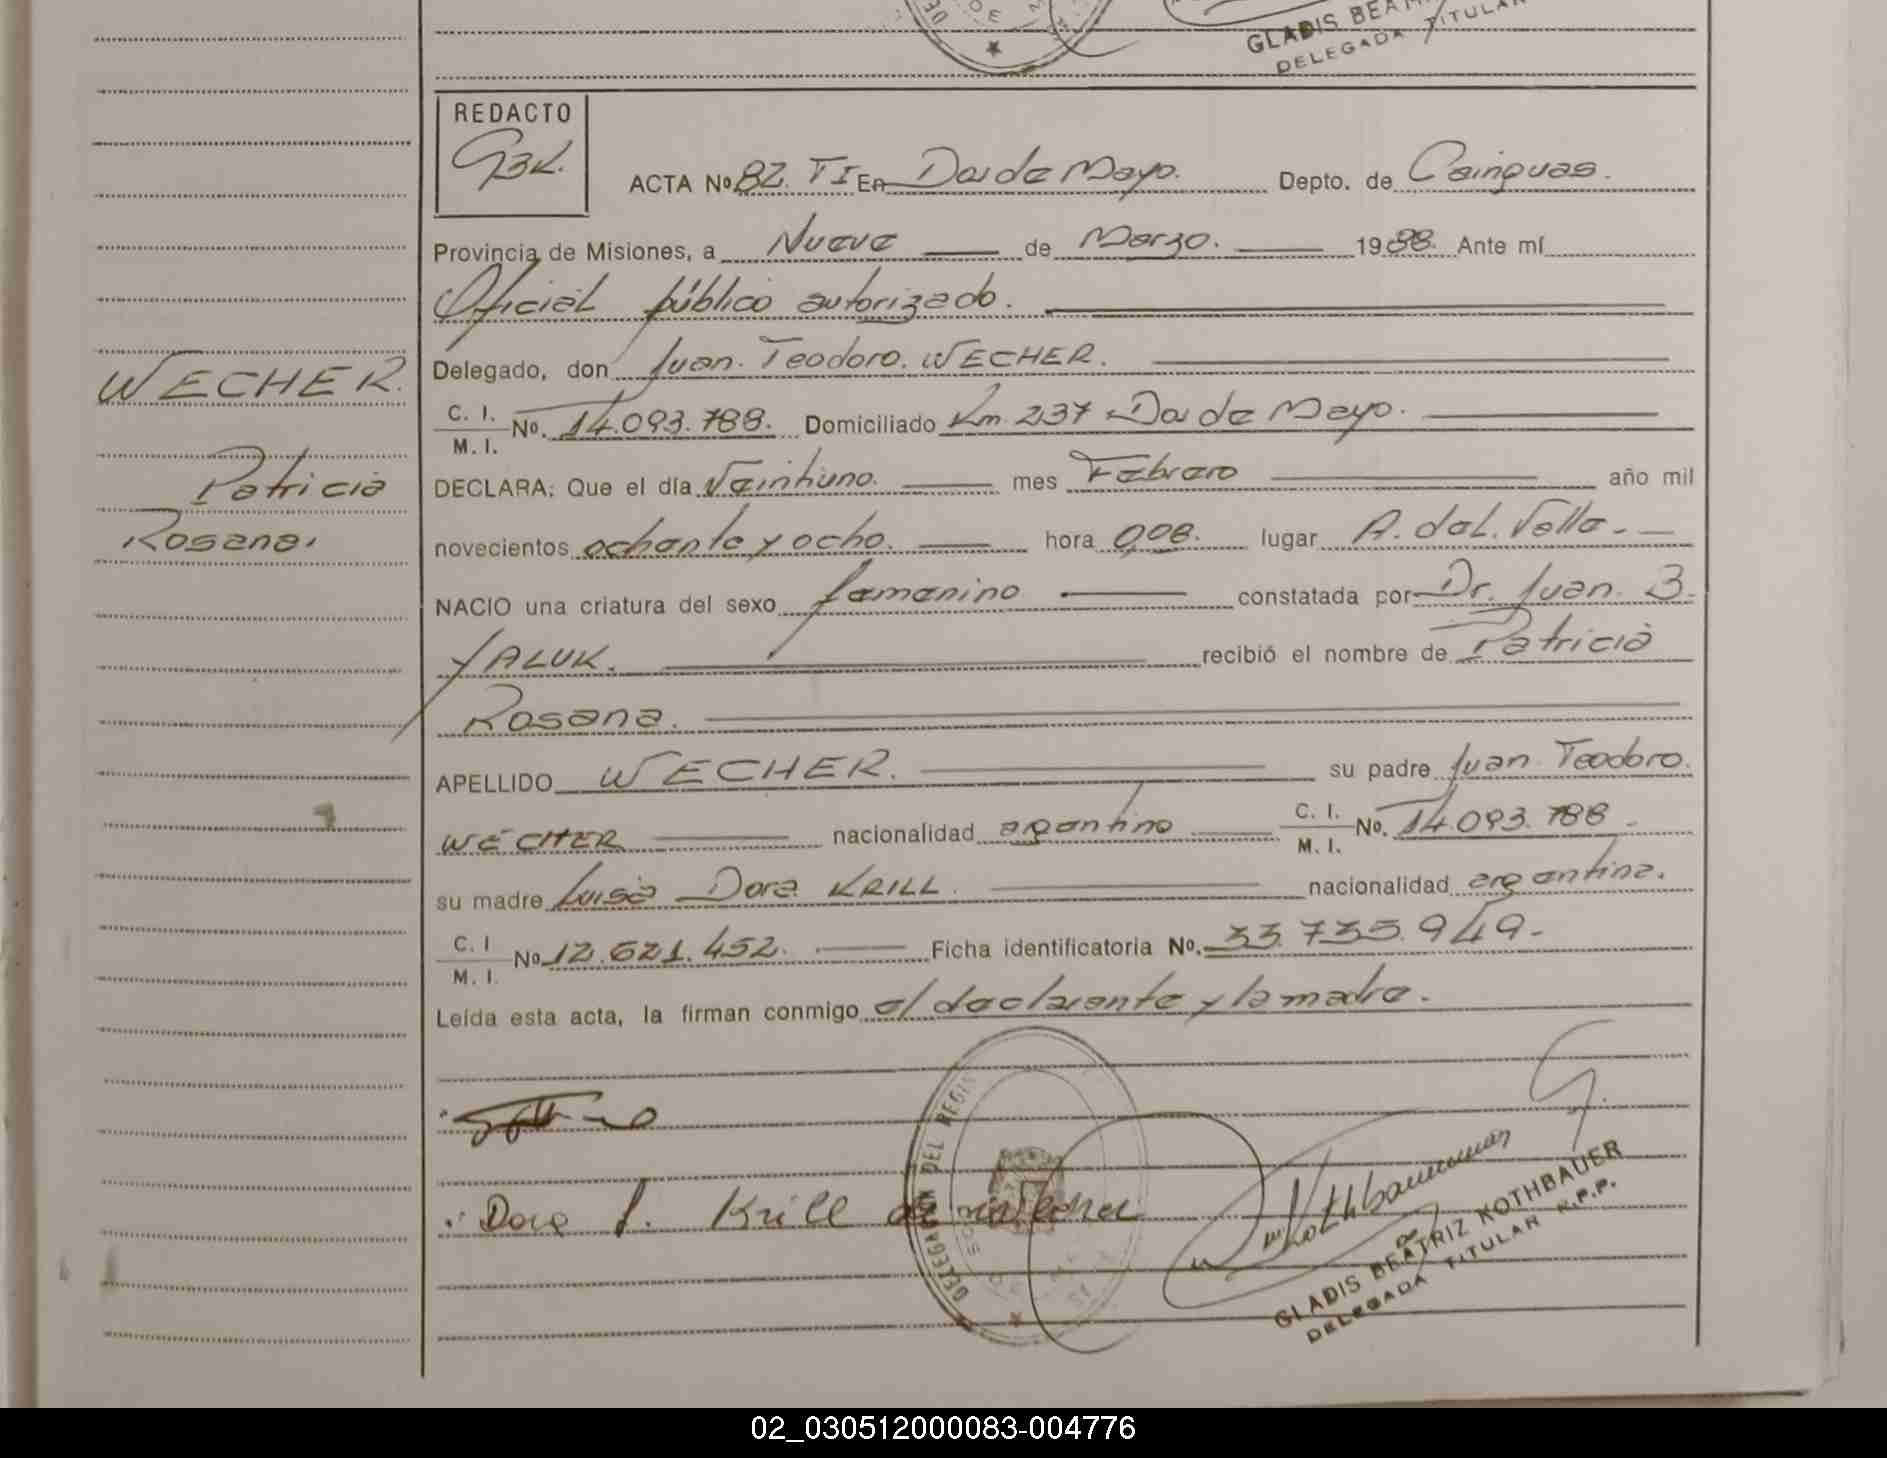 GLADIS BEA
DELEGADA TITULAR
REDACTO
GBK.
ACTA Nº 82. TI En Dos de Mayo. Depto. de Cainguas.
Provincia de Misiones, a Nueve de Marzo. 1988. Ante mí
Oficial público autorizado.
Delegado, don Juan. Teodoro. WECHER.
WECHER.
C. I.
M. I.
Nº. 14.093.788. Domiciliado Km 237 Dos de Mayo.
Patricia
DECLARA: Que el día Veintiuno. mes Febrero año mil
Rosana.
novecientos ochenta y ocho. hora 0,08. lugar A. del. Valle.
NACIO una criatura del sexo femenino constatada por Dr. Juan. B.
YALUK. recibió el nombre de Patricia
Rosana.
APELLIDO WECHER. su padre Juan Teodoro.
WECHER nacionalidad argentino C. I.
M. I.
Nº. 14.093.788
su madre Luisa Dora KRILL. nacionalidad argentina.
C. I
M. I.
Nº 12.621.452. Ficha identificatoria Nº. 33.735.949.
Leída esta acta, la firman conmigo el declarante y la madre.
DELEGACION DEL REGIS
Dora L. Krill de Wecher
Kothbauer
GLADIS BEATRIZ KOTHBAUER
DELEGADA TITULAR R.P.P.
02_030512000083-004776